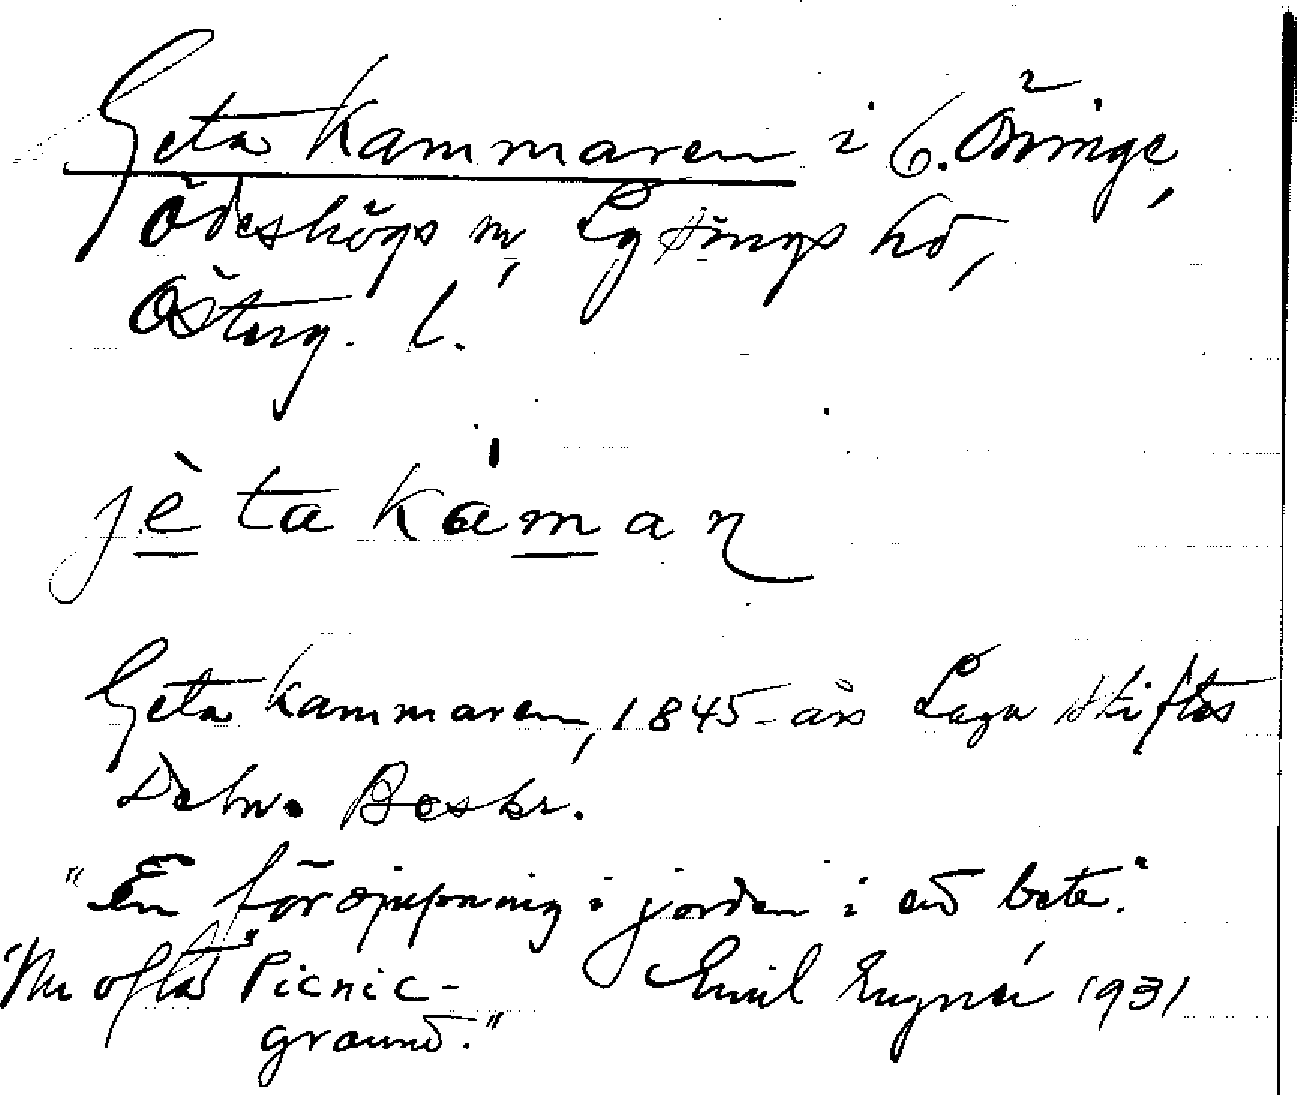 Geta kammaren i b. Öninge,
Ödeshögs sn, Lysings hd,
Österg. l.
jèta kámaꞃ
Geta kammaren, 1845-års Laga skiftes
Delns Beskr.
"En fördjupning i jorden i ett bete."
"Nu ofta "Picnic-
ground." Emil 1931